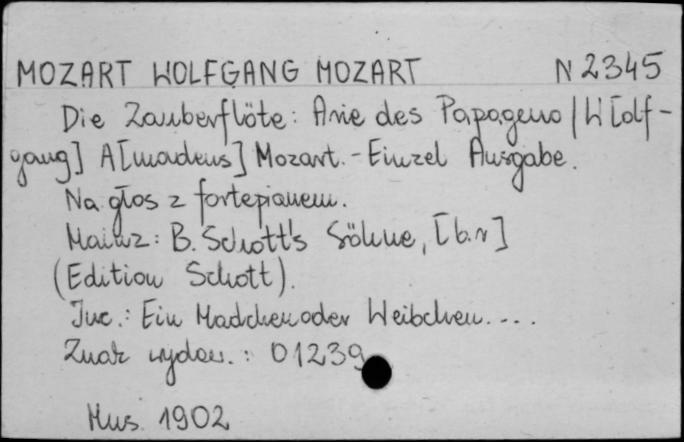 MOZART WOLFGANG MOZART N 2345
Die Zauberflöte: Arie des Papageno / W[olf-
gang] A[madeus] Mozart. - Einzel Ausgabe.
Na głos z fortepianem.
Mainz: B. Schott's Söhne, [b.r]
(Edition Schott).
Inc.: Ein Madchen oder Weibchen....
Znak wydaw.: 01239
Mus. 1902